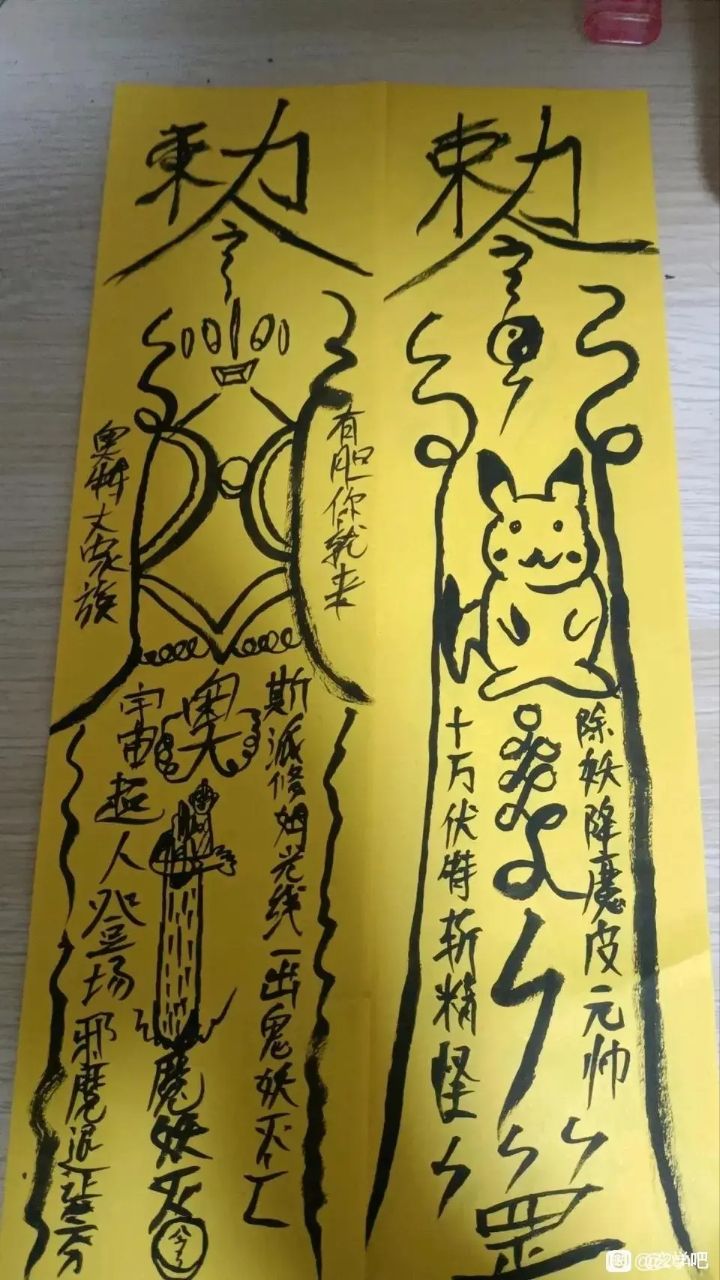 敕
令
除妖降魔皮元帅
十万伏特斩精怪
罡
敕
令
有胆你就来
奥特大家族
斯派修姆光线一出鬼妖灭亡
奥
宇宙超人登场邪魔退避三分
魔妖灭